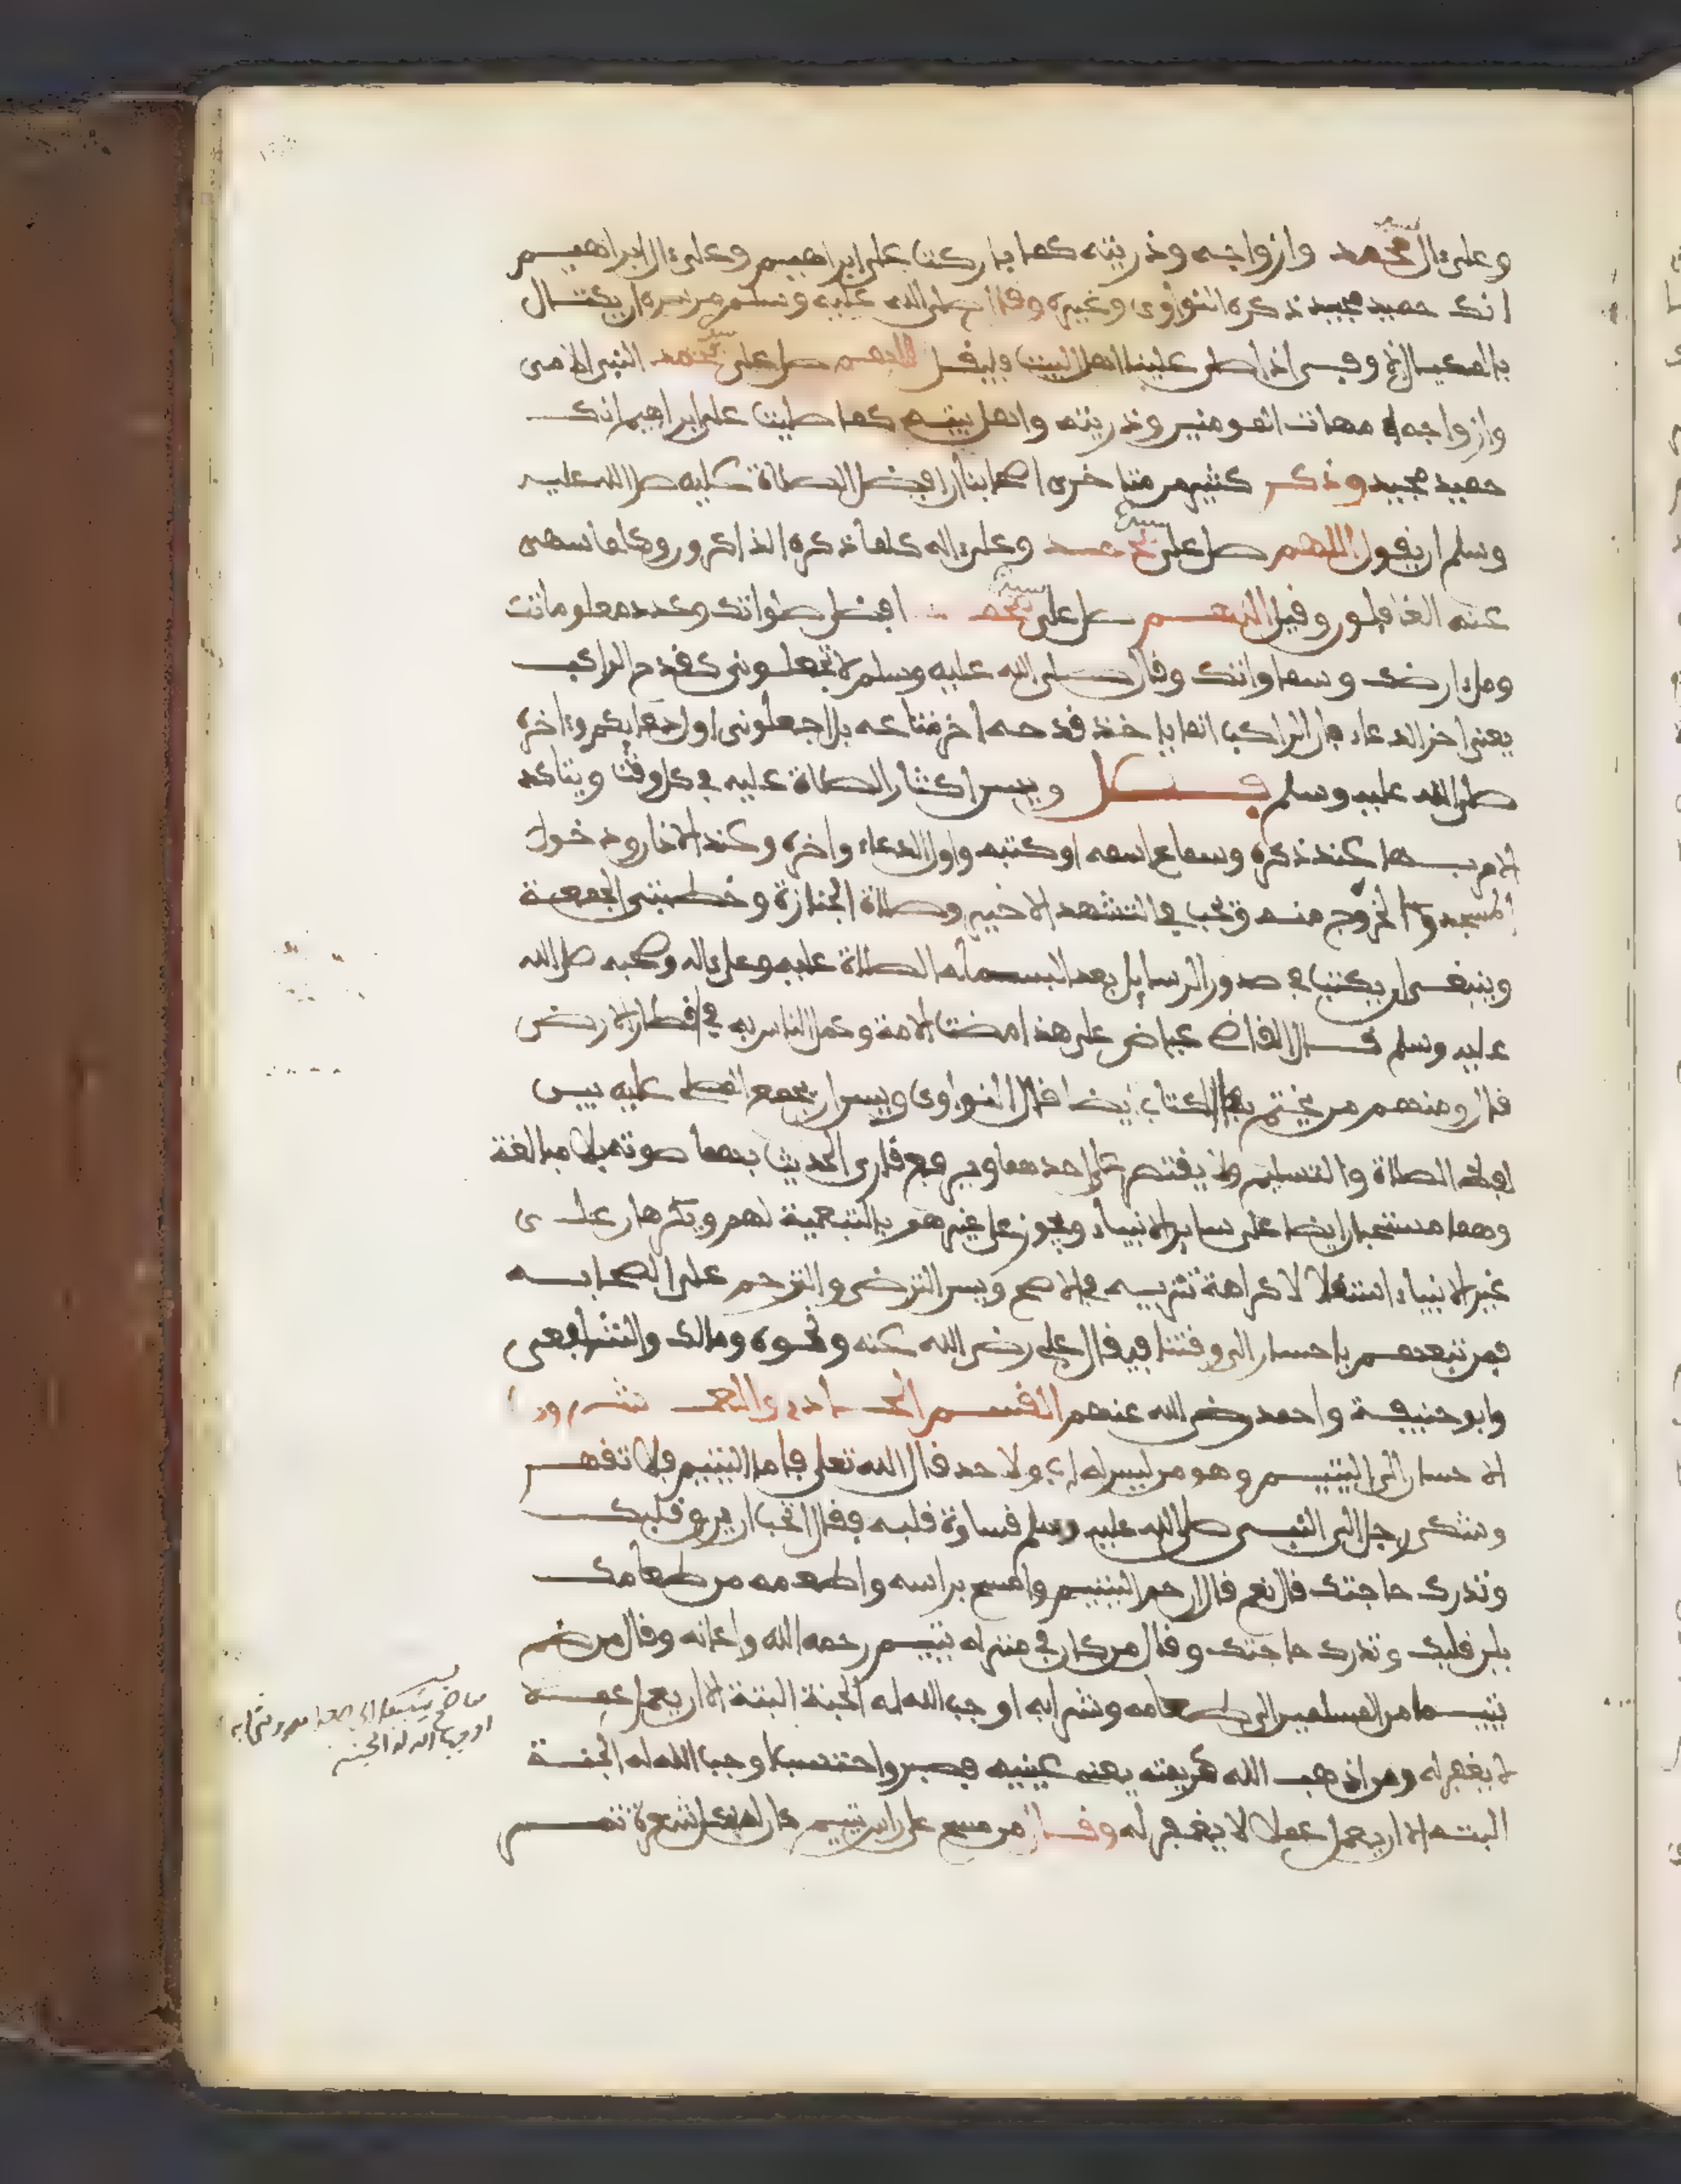 وعلى ءال محمد وازواجه وذريته كما باركت على ابراهيم وعلى ءال ابراهيم
انك حميد مجيد ذكره النواوى وغيره وقال صلى الله عليه وسلم من سره ان يكتال
بالمكيال الاوفى اذا صلى علينا اهل البيت فليقل اللهم صل على محمد النبى الامى
وازواجه امهات المومنين وذريته واهل بيته كما صليت على ابراهيم انك
حميد مجيد وذكر كثير من متاخرى اصحابنا ان افضل الصلاة عليه صلى الله عليه
وسلم ان يقول اللهم صل على محمد وعلى ءاله كلما ذكره الذاكرون وكلما سهى
عنه الغافلون وقيل اللهم صل على محمد افضل صلواتك وعدد معلوماتك
وملء ارضك وسماواتك وقال صلى الله عليه وسلم لا تجعلونى كقدح الراكب
يعنى اخر الدعاء فان الراكب انما ياخذ قدحه اخر متاعه بل اجعلونى اول دعايكم وءاخره
صلى الله عليه وسلم فصل ويسن اكثار الصلاة عليه في كل وقت ويتاكد
الامر بها عند ذكره وسماع اسمه او كتبه واول الدعاء واخره وعند الاذان ودخول
المسجد والخروج منه وتجب في التشهد الاخير وصلاة الجنازة وخطبتى الجمعة
وينبغى ان يكتب في صدور الرسايل بعد البسملة الصلاة عليه وعلى ءاله وصحبه صلى الله
عليه وسلم قال القاضى عياض على هذا مضت الامة وعمل الناس به في اقطار الارض
قال ومنهم من يختم بها الكتاب ايضا قال النواوى ويسن ان يجمع المصلى عليه بين
لفظ الصلاة والتسليم ولا يقتصر على احدهما ويرفع قارى الحديث بهما صوته بلا مبالغة
وهما مستحبان ايضا على ساير الانبياء ويجوز على غيرهم بالتبعية لهم ويكرهان على
غير الانبياء استقلالا كراهة تنزيه في الاصح ويسن الترضى والترحم على الصحابة
فمن تبعهم باحسان الى وقتنا فيقال على رضى الله عنه ونحوه ومالك والشافعى
وابو حنيفة واحمد رضى الله عنهم القسم الحادى والعشرون
الاحسان الى اليتيم وهو من ليس له اب ولا جد قال الله تعلى فاما اليتيم فلا تقهر
وشكى رجل الى النبى صلى الله عليه وسلم قساوة قلبه فقال اتحب ان يرق قلبك
وتدرك حاجتك قال نعم قال ارحم اليتيم وامسح براسه واطعمه من طعامك
يلن قلبك وتدرك حاجتك وقال من كان في منزله يتيم رحمه الله واعانه وقال من ضم
يتيما من المسلمين الى طعامه وشرابه اوجب الله له الجنة البتة الا ان يعمل عملا
لا يغفر له ومن اذهب الله كريمتيه يعنى عينيه فصبر واحتسب اوجب الله له الجنة
البتة الا ان يعمل عملا لا يغفر له وقال من مسح على راس يتيم كان له بكل شعرة تمر
من ضم يتيما الى طعامه وشرابه
اوجب الله له الجنة